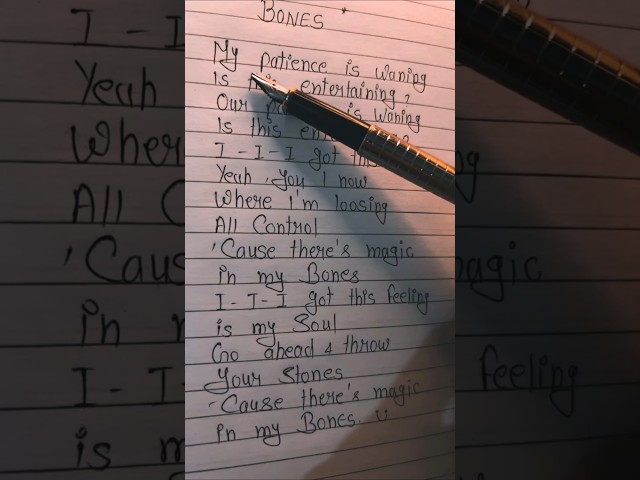 BONES
My patience is waning
Is entertaining?
Our is waning
Is this
I - I - I got
Yeah, you I now
Where I'm loosing
All Control
'Cause there's magic
in my Bones
I - I - I got this feeling
is my Soul
Go ahead & throw
Your Stones
'Cause there's magic
in my Bones.